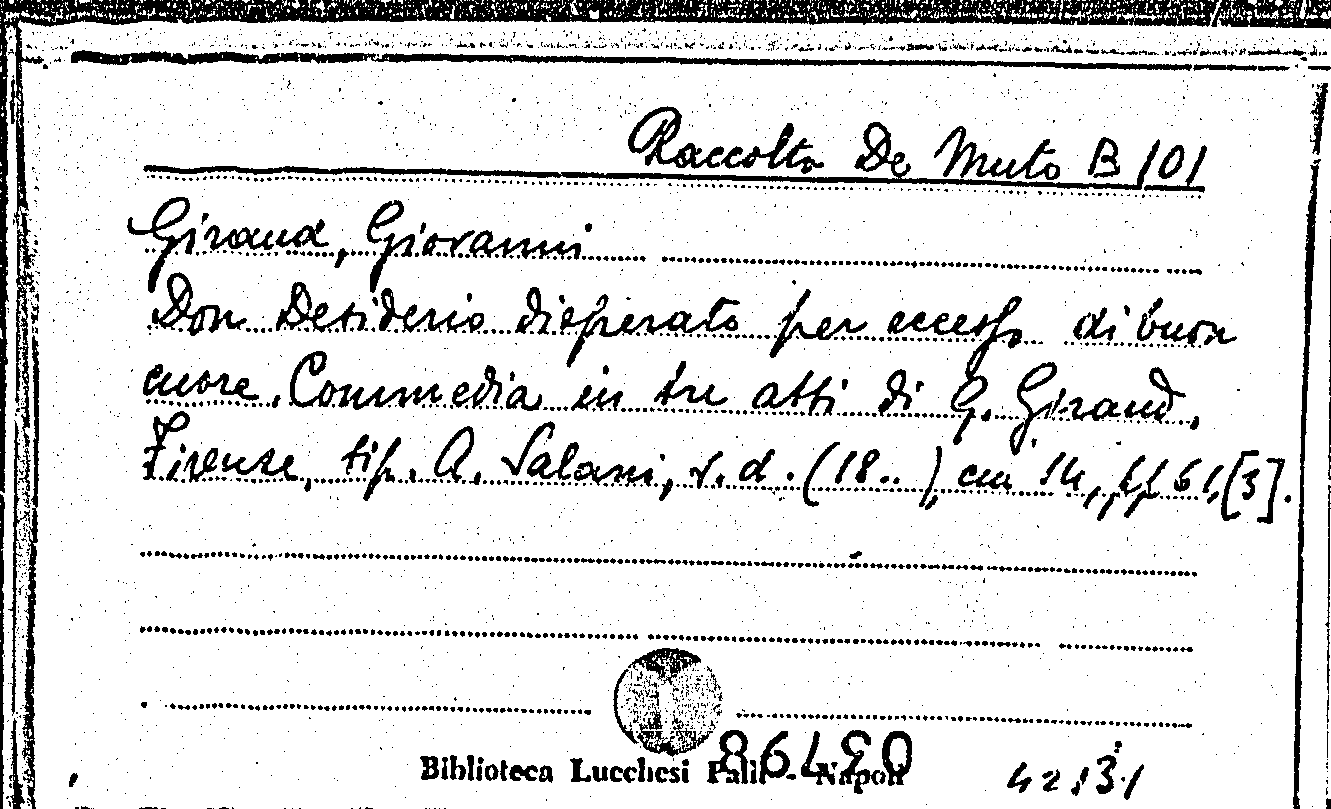 Raccolta De Muto B 101
Giraud, Giovanni
Don Desiderio disperato per eccesso di buon
cuore. Commedia in tre atti di G. Giraud.
Firenze, tip. A. Salani, s. d. (18..), cm 14, pp 61, [3].
Biblioteca Lucchesi Palli - Napoli